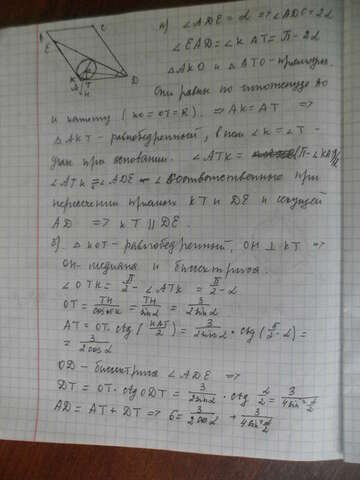 B C
E
K O
A T D
H
а) ∠ADE = α => ∠ADC = 2α
∠EAD = ∠KAT = π - 2α
ΔAKO и ΔATO - прямоуг.
Они равны по гипотенузе AO
и катету (KO = OT = R). => AK = AT =>
ΔAKT - равнобедренный, в нём ∠K = ∠T -
при основании. ∠ATK = (π - ∠KAT)/2
∠ATK = ∠ADE - соответственные при
пересечении прямых KT и DE и секущей
AD => KT || DE.
б) ΔKOT - равнобедренный, OH ⊥ KT =>
OH - медиана и биссектриса.
∠OTK = π/2 - ∠ATK = π/2 - α
OT = TH/cosOTK = TH/sinα = 3/2sinα
AT = OT · ctg(KAT/2) = 3/2sinα · ctg(π/2 - α) =
= 3/2cosα
OD - биссектриса ∠ADE =>
DT = OT · ctgODT = 3/2sinα · ctg α/2 = 3/4sin² α/2
AD = AT + DT => 6 = 3/2cosα + 3/4sin² α/2